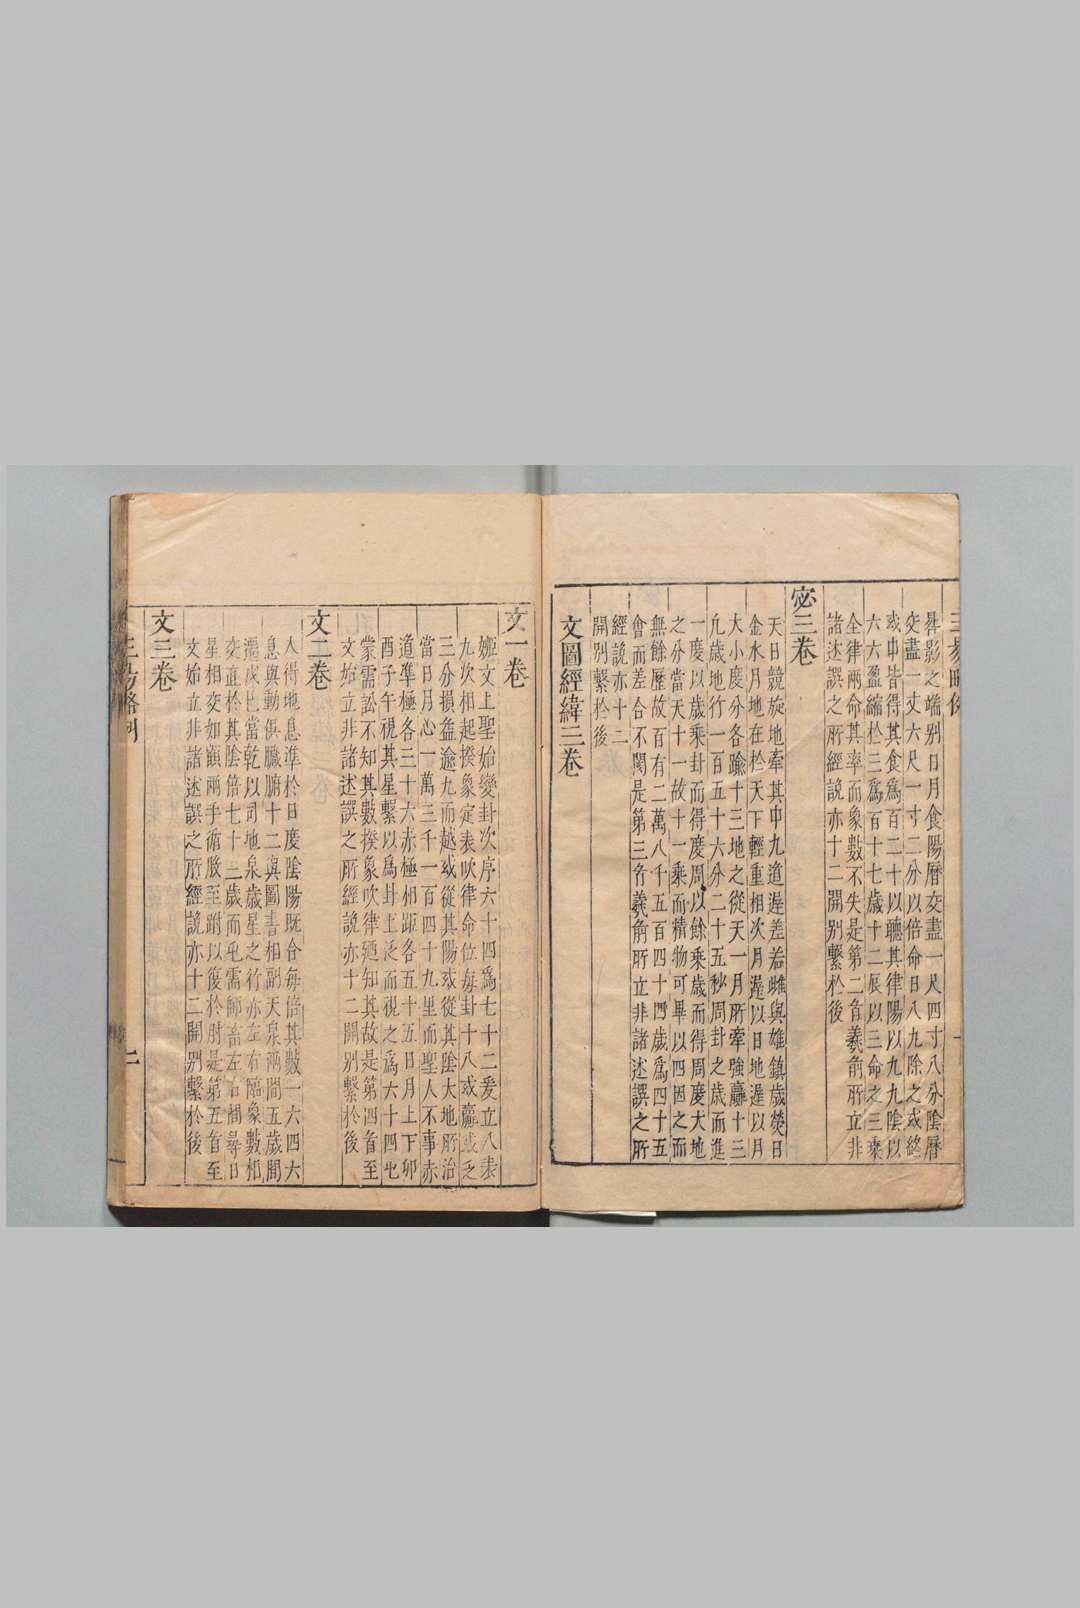 三易略例
晷影之端别日月食陽曆交盡一尺四寸八分陰曆
交盡一丈六尺一寸二分以倍命日八九除之或終
或中皆得其食爲百二十以聽其律陽以九九陰以
六六盈縮於三爲百十七歲十二展以三命之三乘
全律兩命其率而象數不失是第二旨羲前所立非
諸述譔之所經説亦十二開别繫於後
宓三卷
天日競旋地牽其中九道遲差若雌與雄鎮歲熒日
金水月地在於天下輕重相次月遲以日地遲以月
大小度分各踰十三地之從天一月所牽強贏十三
九歲地行一百五十六分二十五秒周卦之歲而進
一度以歲乘卦而得度周以餘乘歲而得周度大地
之分當天十一故十一乘而精物可畢以四因之而
無餘歷故百有二萬八千五百四十四歲爲四十五
會而差合不閡是第三旨羲前所立非諸述譔之所
經說亦十二
開别繫於後
文圖經緯三卷
文一卷
姬文上聖始變卦次序六十四爲七十二爰立八表
九次相起揆象定表吹律命位每卦十八或贏或乏
三分損益逾九而越或從其陽或從其陰大地所治
當日月心一萬三千一百四十九里而聖人不事赤
道準極各三十六赤極相距各五十五日月上下卯
酉子午視其星繫以爲卦主泛而視之爲六十四屯
蒙需訟不知其數揆象吹律廼知其故是第四旨至
文始立非諸述譔之所經說亦十二開别繫於後
文二卷
人得地息準於日度陰陽既合每倍其數一六四六
息與動俱臟腑十二與圖書相副天泉兩間五歲間
遷戊巳當乾以司地泉歲星之行亦左右臨象數相
交直於其陰倍七十二歲而屯需師畜左右間尋日
星相交如頤兩手循胲至跗以復於肘是第五旨至
文始立非諸述譔之所經說亦十二開别繫於後
文三卷
三易略例
二